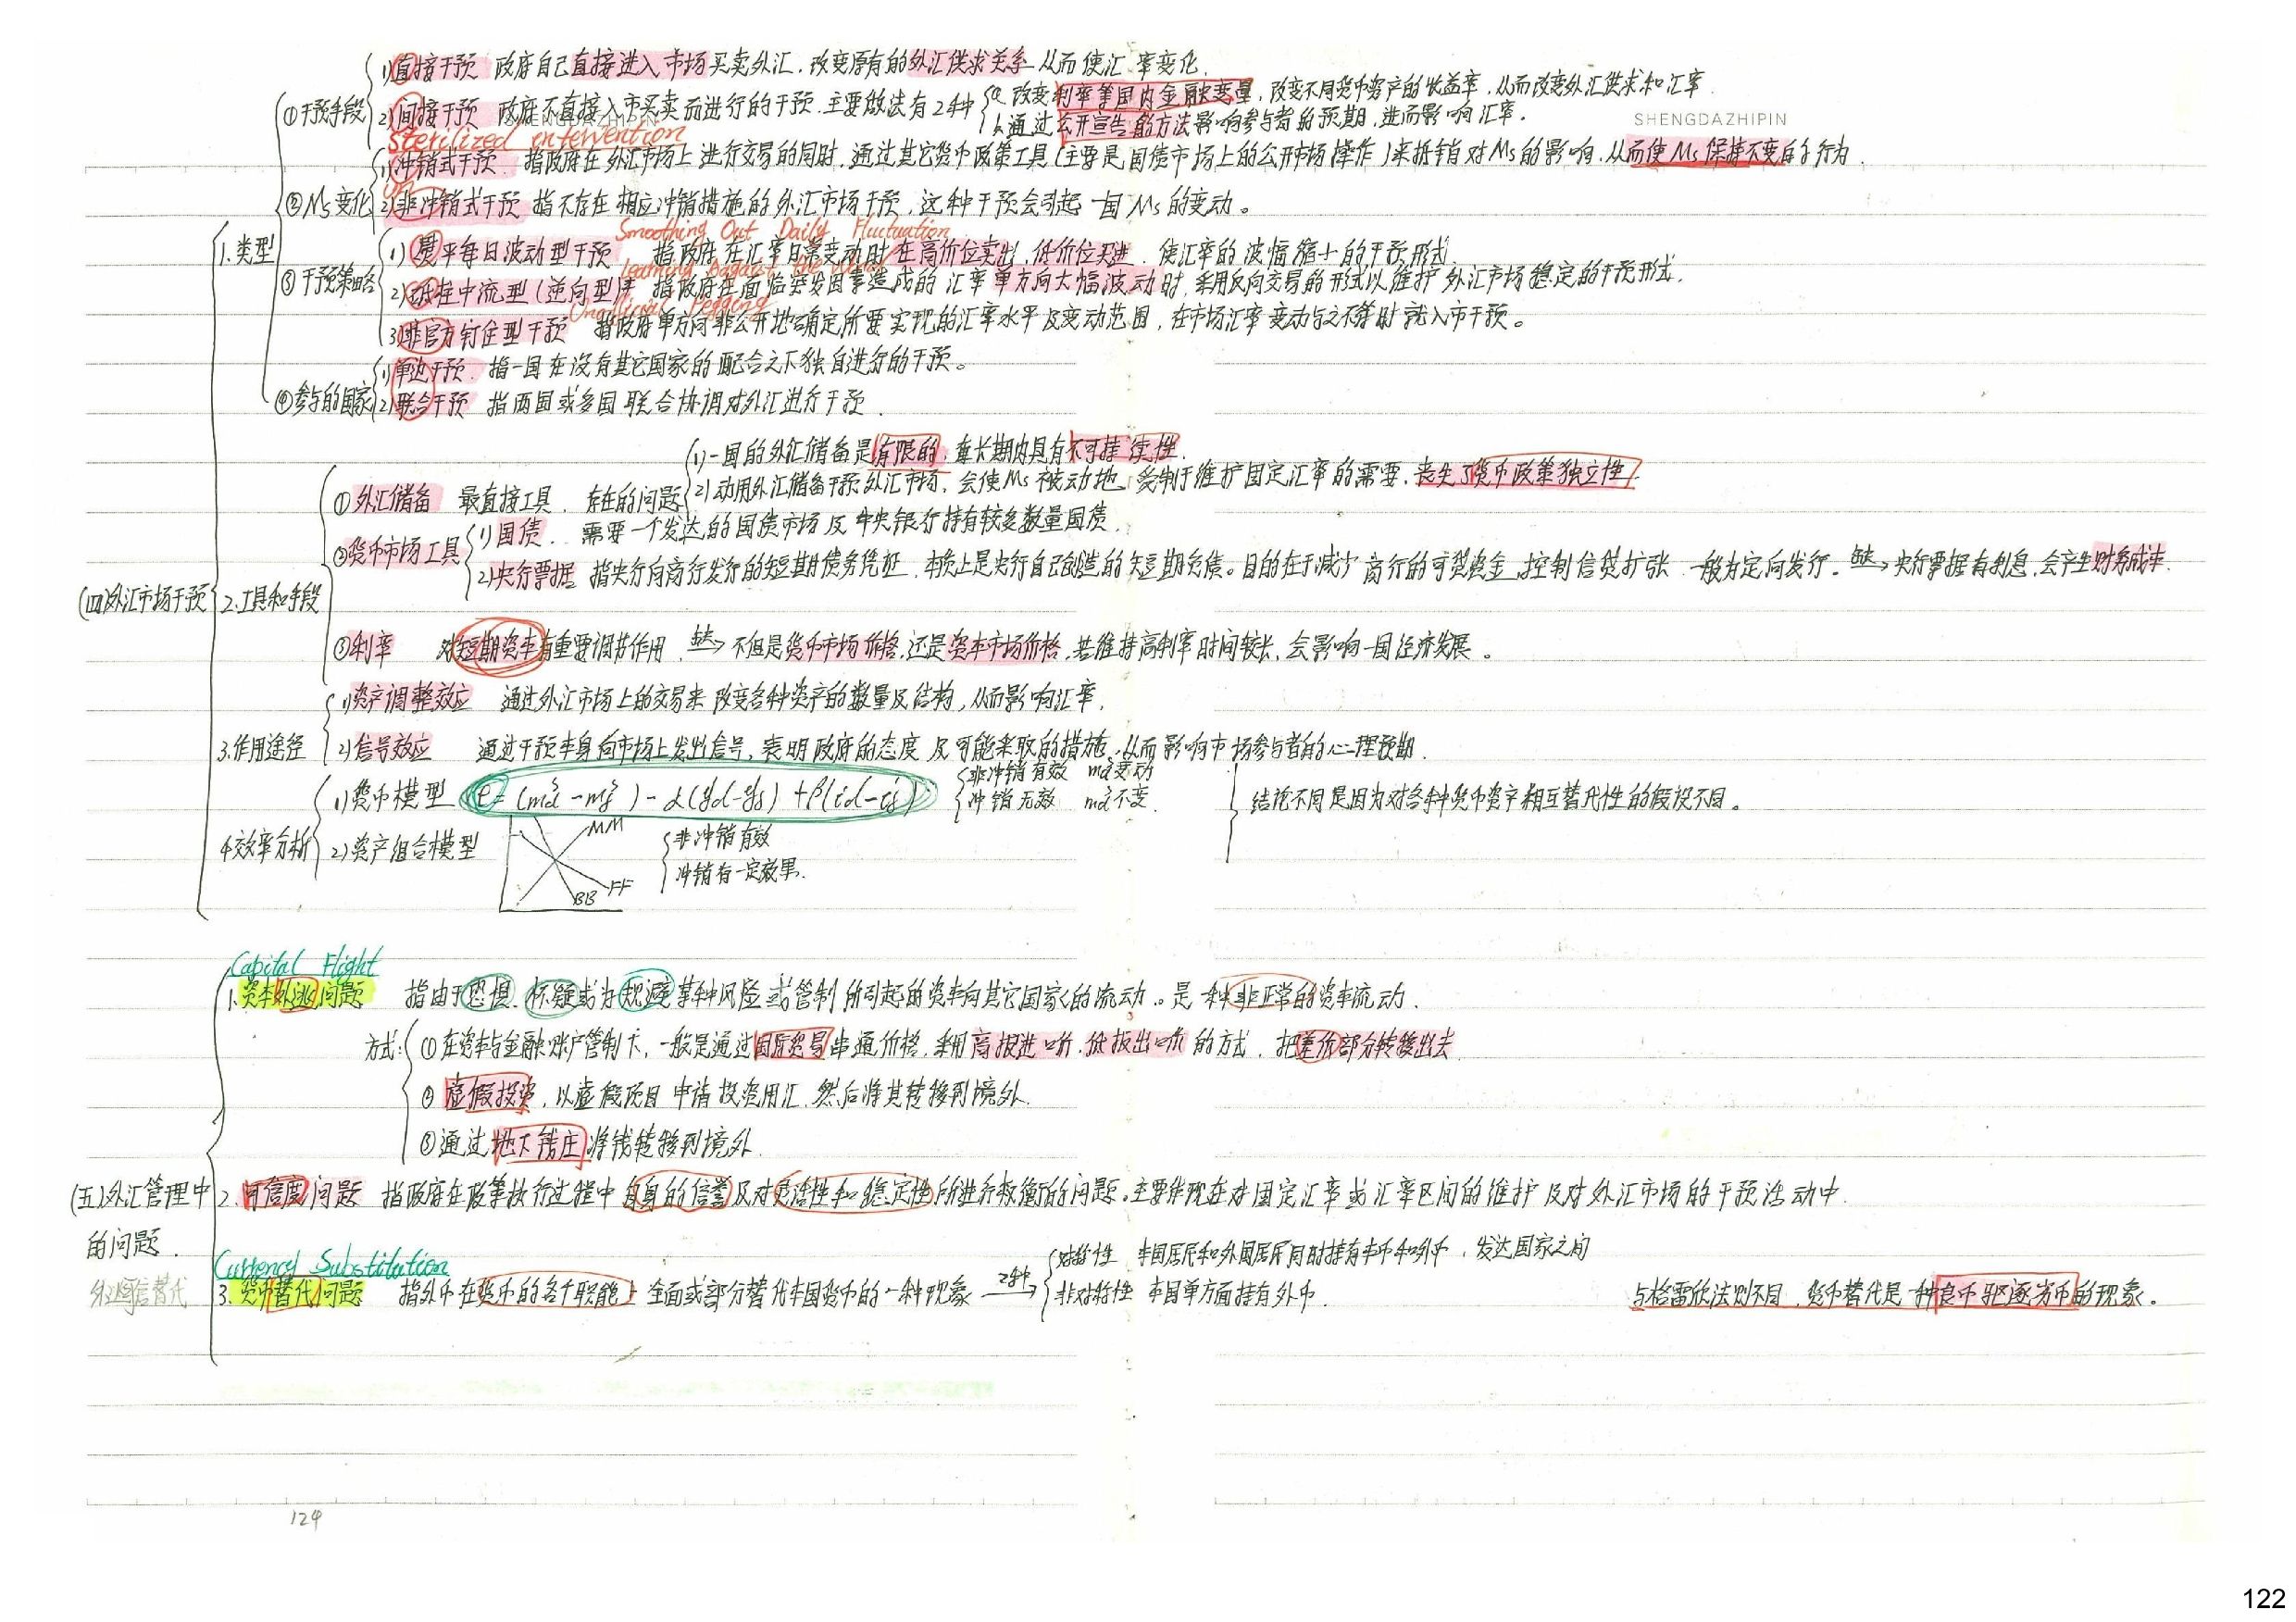 1)直接干预 政府自己直接进入市场买卖外汇,改变原有的外汇供求关系从而使汇率变化.
①干预手段
2)间接干预 政府不直接入市买卖而进行的干预.主要做法有2种
a.改变利率等国内金融变量,改变不同货币资产的收益率,从而改变外汇供求和汇率.
b.通过公开宣告的方法影响参与者的预期,进而影响汇率.
SHENGDAZHIPIN
SHENGDAZHIPIN
Sterilized intervention
1)冲销式干预. 指政府在外汇市场上进行交易的同时,通过其它货币政策工具(主要是国债市场上的公开市场操作)来抵销对Ms的影响,从而使Ms保持不变的行为.
②Ms变化
Un
2)非冲销式干预 指不存在相应冲销措施的外汇市场干预,这种干预会引起一国Ms的变动。
Smoothing Out Daily Fluctuation
1.类型
1)熨平每日波动型干预 指政府在汇率日常变动时在高价位卖出,低价位买进.使汇率的波幅缩小的干预形式.
the Wind
③干预策略
2)砥柱中流型(逆向型) 指政府在面临突发因素造成的汇率单方向大幅波动时,采用反向交易的形式以维护外汇市场稳定的干预形式.
Unofficial Pegging
3)非官方钉住型干预 指政府单方向非公开地确定所要实现的汇率水平及变动范围,在市场汇率变动与之不符时就入市干预。
1)单边干预. 指一国在没有其它国家的配合之下独自进行的干预。
④参与的国家
2)联合干预 指两国或多国联合协调对外汇进行干预.
1)一国的外汇储备是有限的,在长期内具有不可持续性.
①外汇储备 最直接工具. 存在的问题
2)动用外汇储备干预外汇市场,会使Ms被动地受制于维护固定汇率的需要,丧失了货币政策独立性.
1)国债. 需要一个发达的国债市场及中央银行持有较多数量国债.
②货币市场工具
2)央行票据 指央行向商行发行的短期债务凭证.本质上是央行自己创造的短期负债。目的在于减少商行的可贷资金,控制信贷扩张.一般为定向发行。缺→央行票据有利息,会产生财务成本.
(四)外汇市场干预
2.工具和手段
③利率 对短期资本有重要调节作用. 缺→不但是货币市场价格,还是资本市场价格,若维持高利率时间较长,会影响一国经济发展。
1)资产调整效应 通过外汇市场上的交易来改变各种资产的数量及结构,从而影响汇率.
3.作用途径
2)信号效应 通过干预本身向市场上发出信号,表明政府的态度及可能采取的措施,从而影响市场参与者的心理预期.
1)货币模型 e=(md^s-mf^s)-α(yd-yf)+β(id-if)
非冲销有效 md^s变动
冲销无效 md^s不变.
结论不同是因为对各种货币资产相互替代性的假设不同。
4.效率分析
2)资产组合模型
MM
FF
BB
非冲销有效
冲销有一定效果.
Capital Flight
1.资本外逃问题 指由于恐惧、怀疑或为规避某种风险或管制所引起的资本向其它国家的流动。是一种非正常的资本流动.
方式:
①在资本与金融账户管制下,一般是通过国际贸易串通价格,采用高报进口价,低报出口价的方式,把差价部分转移出去
②虚假投资,以虚假项目申请投资用汇.然后将其转移到境外.
③通过地下钱庄将钱转移到境外.
(五)外汇管理中的问题.
2.可信度问题 指政府在政策执行过程中自身的信誉及对灵活性和稳定性所进行权衡的问题。主要体现在对固定汇率或汇率区间的维护及对外汇市场的干预活动中.
Currency Substitution
3.货币替代问题 指外币在货币的各个职能上全面或部分替代本国货币的一种现象 2种→
对称性 本国居民和外国居民同时持有本币和外币.发达国家之间
非对称性 本国单方面持有外币.
与格雷欣法则不同.货币替代是一种良币驱逐劣币的现象。
124
122